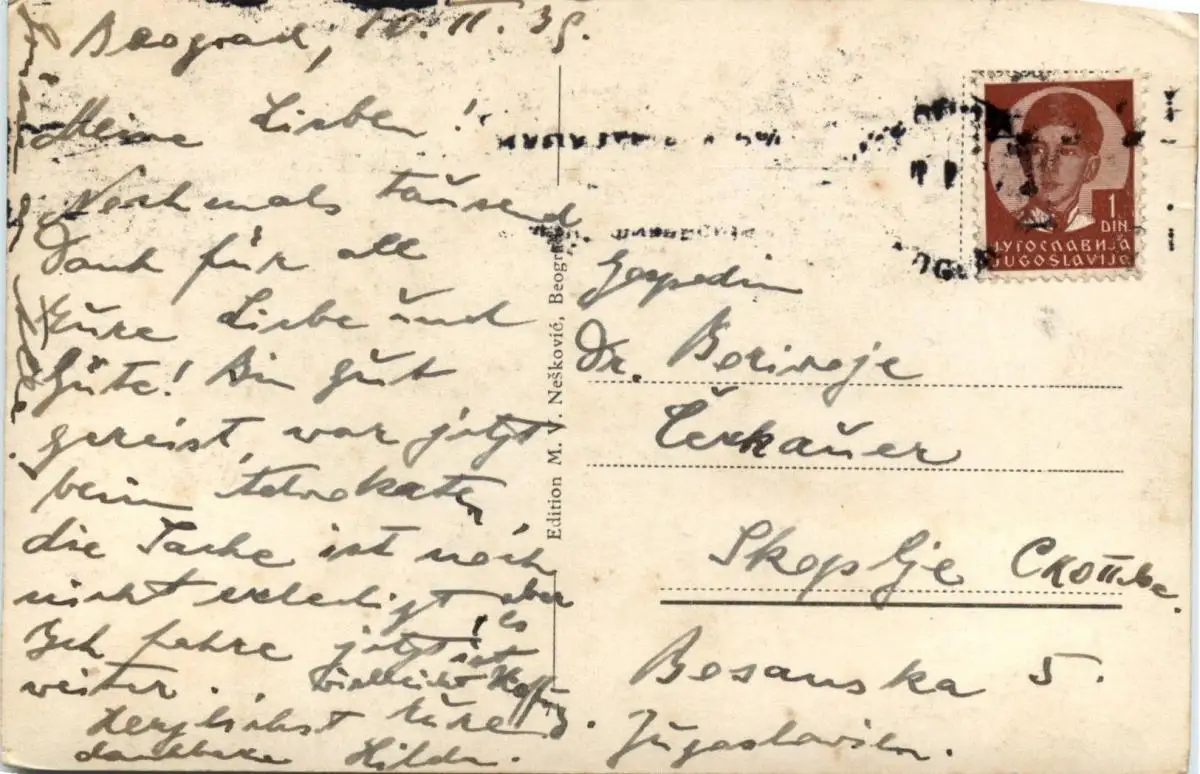 Beograd, 10. II. 39.
Meine Lieben!
Nochmals taŭsend
Dank für all
Eŭre Liebe ŭnd
Güte! Bin gŭt
gereist, war jetzt
beim Advokaten,
die Sache ist noch
nicht erledigt aber
es ist
vielleicht Hoffng.
Ich fahre jetzt
weiter.
Herzlichst Eŭre
dankbare Hilda.
Edition M. V. Nešković, Beograd
1
DIN.
ЈУГОСЛАВИЈА
JUGOSLAVIJA
Gospodin
Dr. Borivoje
Čerkaŭer
Skoplje Скопље.
Bosanska 5.
Jŭgoslavien.